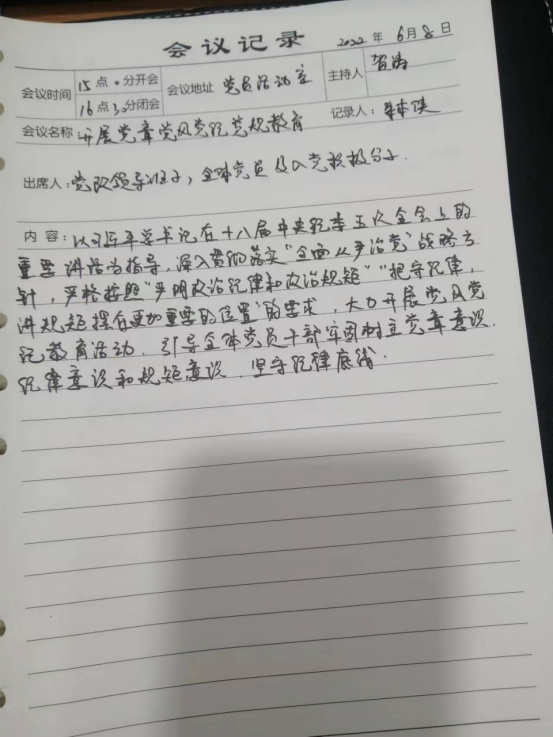 会议记录
2022 年 6月8日
会议时间 15点0分开会 会议地址 党员活动室 主持人
16点30分闭会
会议名称：开展党章党风党纪党规教育 记录人：
出席人：党政领导班子，全体党员及入党积极分子.
内容：以习近平总书记在十八届中央纪委五次全会上的
重要讲话为指导，深入贯彻落实“全面从严治党”战略方
针，严格按照“严明政治纪律和政治规矩”“把守纪律，
讲规矩摆在更加重要的位置”的要求，大力开展党风党
纪教育活动.引导全体党员干部牢固树立党章意识.
纪律意识和规矩意识.坚守纪律底线.